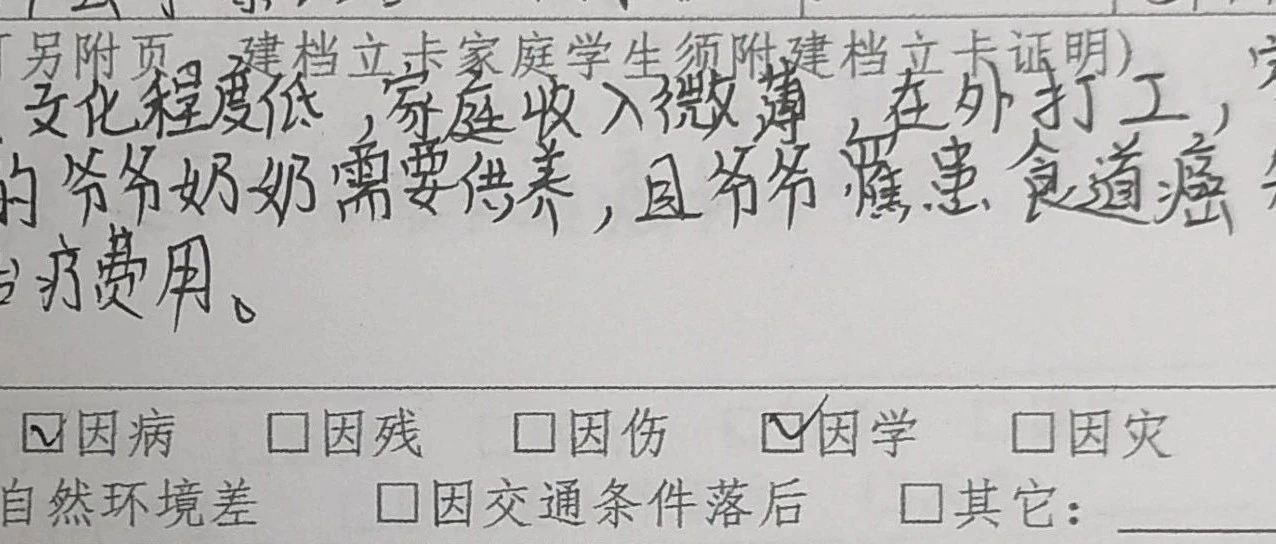 另附页，建档立卡家庭学生须附建档立卡证明)
文化程度低,家庭收入微薄,在外打工,
的爷爷奶奶需要供养,且爷爷罹患食道癌
疗费用。
☑因病 □因残 □因伤 ☑因学 □因灾
自然环境差 □因交通条件落后 □其它: